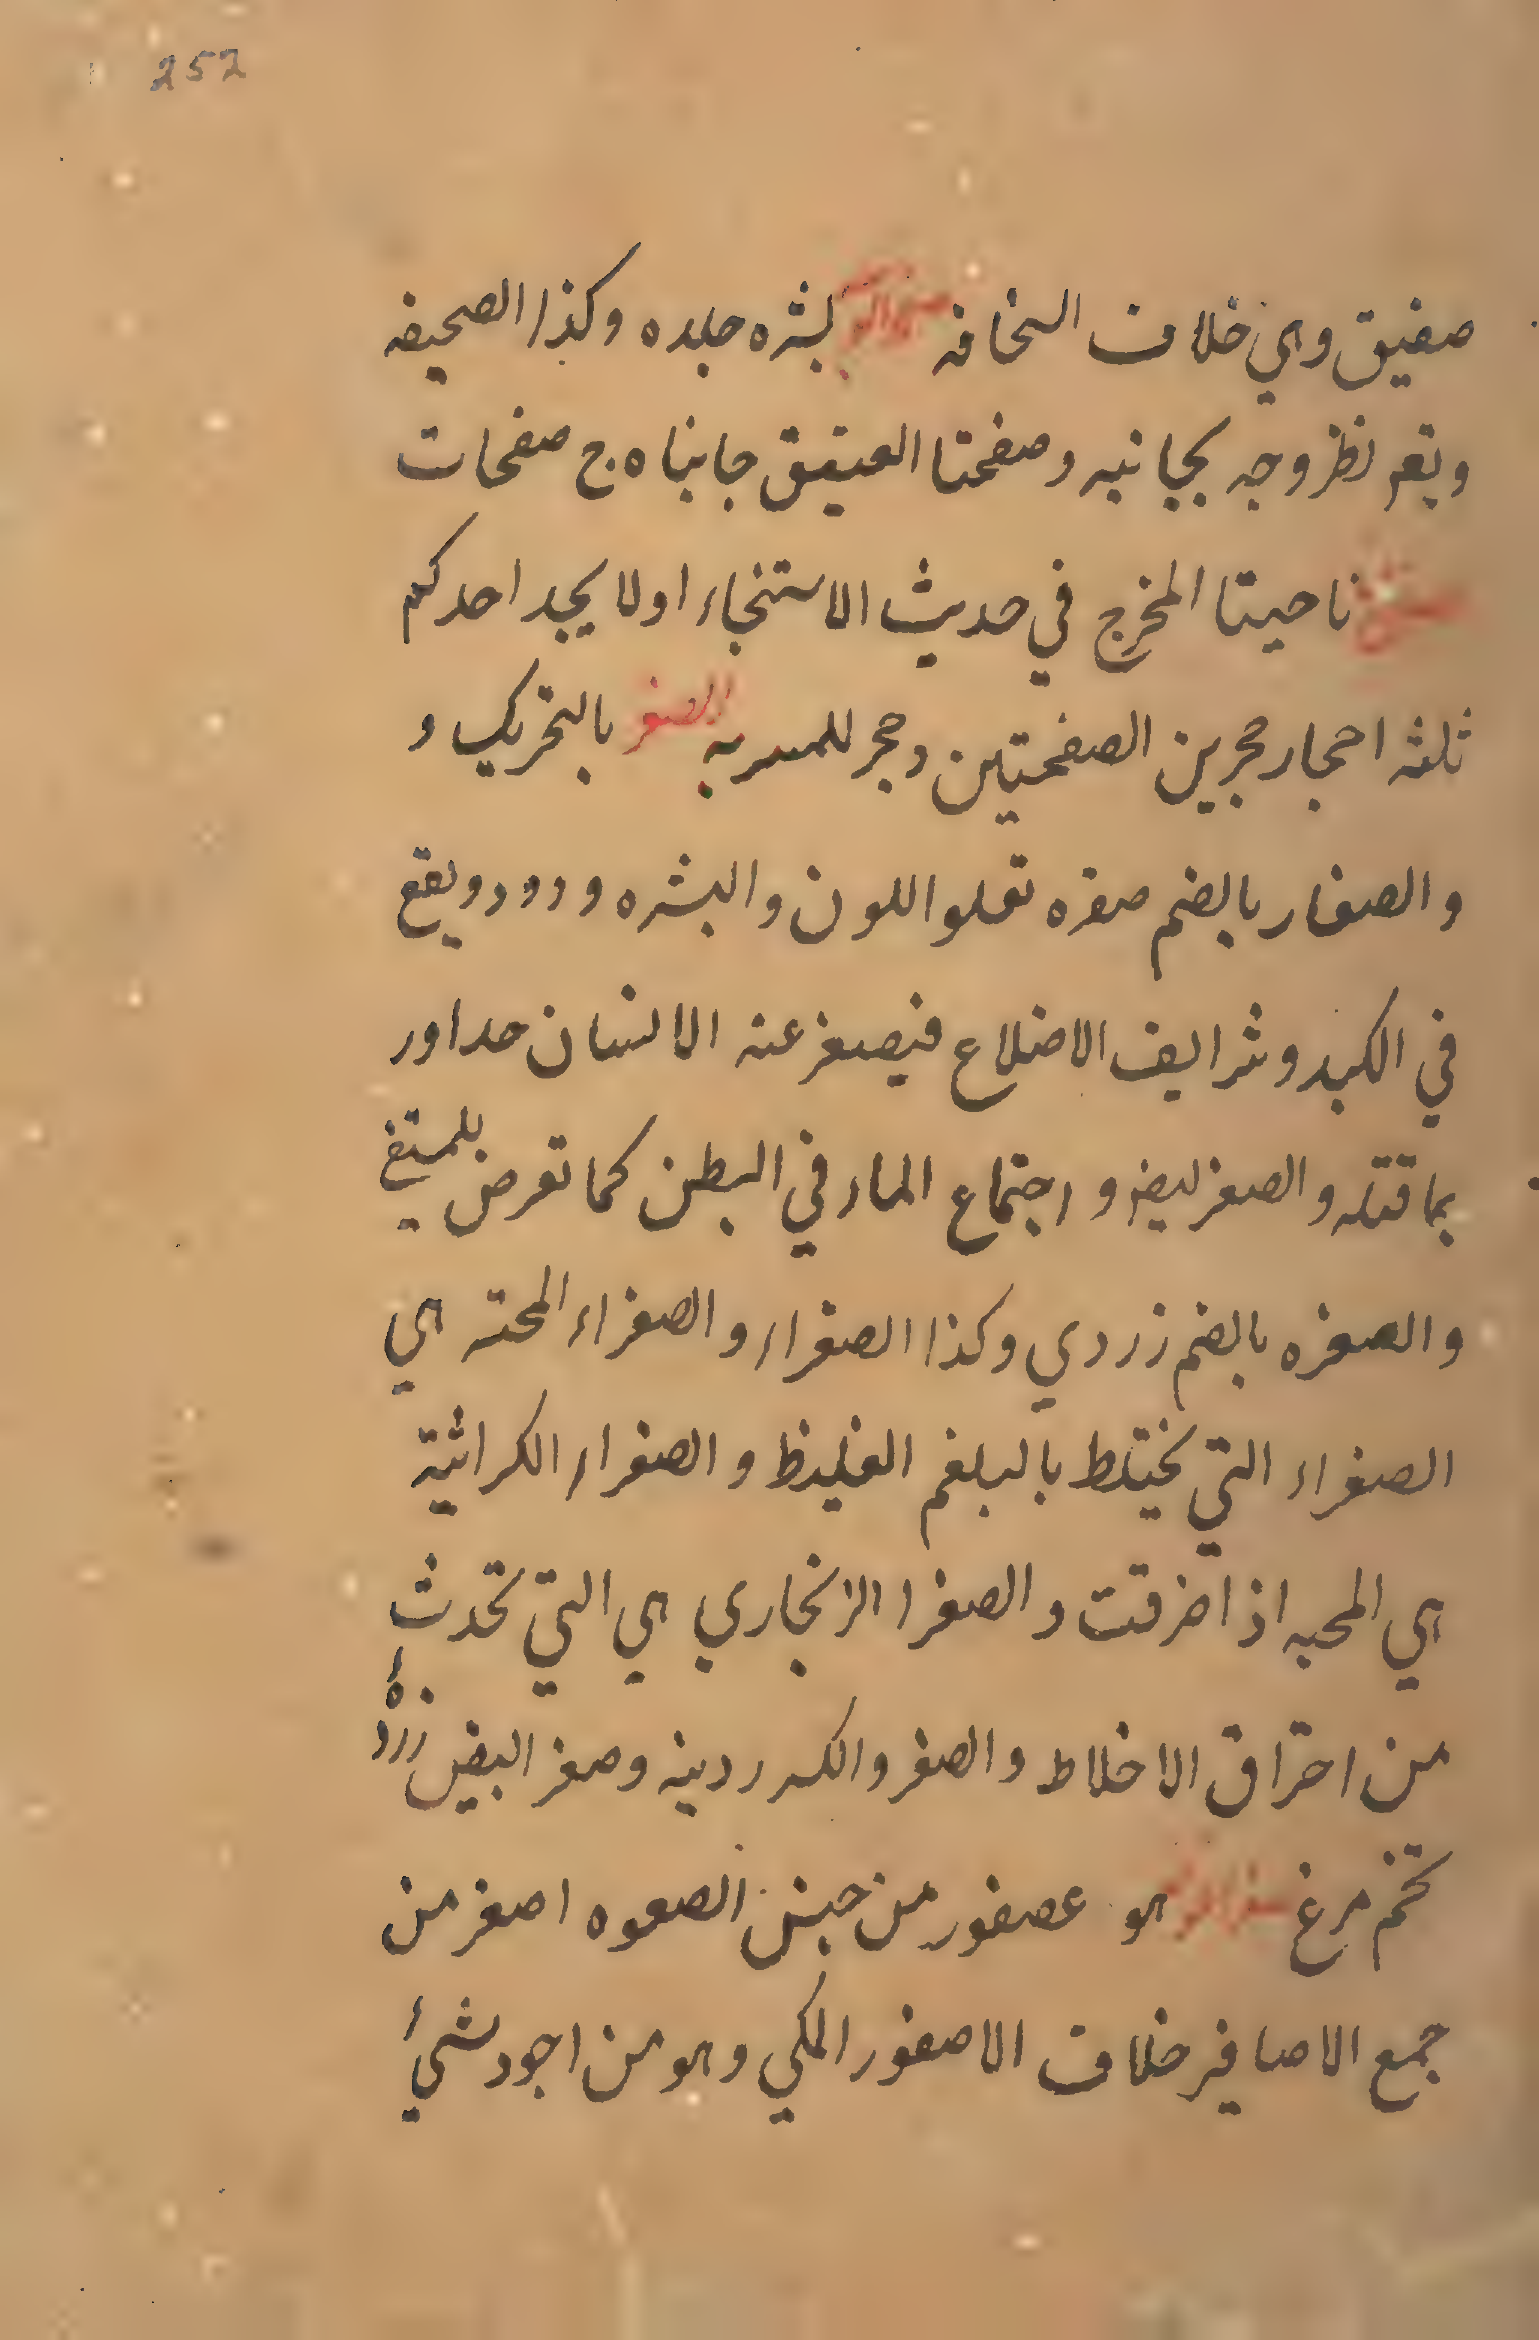 252
صفيق وهي خلاف السخافه بشره جلده وكذا الصحيفه
ونظر وجه بجانبه وصفحتا العنيق جانباه ج صفحات
ناحيتا المخرج في حديث الاستنجاء اولا يجد احدكم
ثلثه احجار حجرين الصفحتين وحجر للمسربه الصفر بالتحريك و
والصفار بالضم صفره تعلو اللون والبشره ودود ويقع
في الكبد وشرايف الاضلاع فيصفر عنه الانسان حدا ور
بما قتله والصفر ليضو واجتماع الماء في البطن كما تعرض
والصفره بالضم زردي وكذا الصفراء والصفراء المحته هي
الصفراء التي يختلط بالبلغم الغليظ والصفراء الكراثية
هي المحيه اذا احرقت والصفرا الزنجاري هي التي تحدث
من احتراق الاخلاط والصفر والكدر دينه وصفر البيض زرده
تخم مرغ هو عصفور من جنس الصعوه اصغر من
جمع الاصافير خلاف الاصفور المكي وهو من اجود شيء